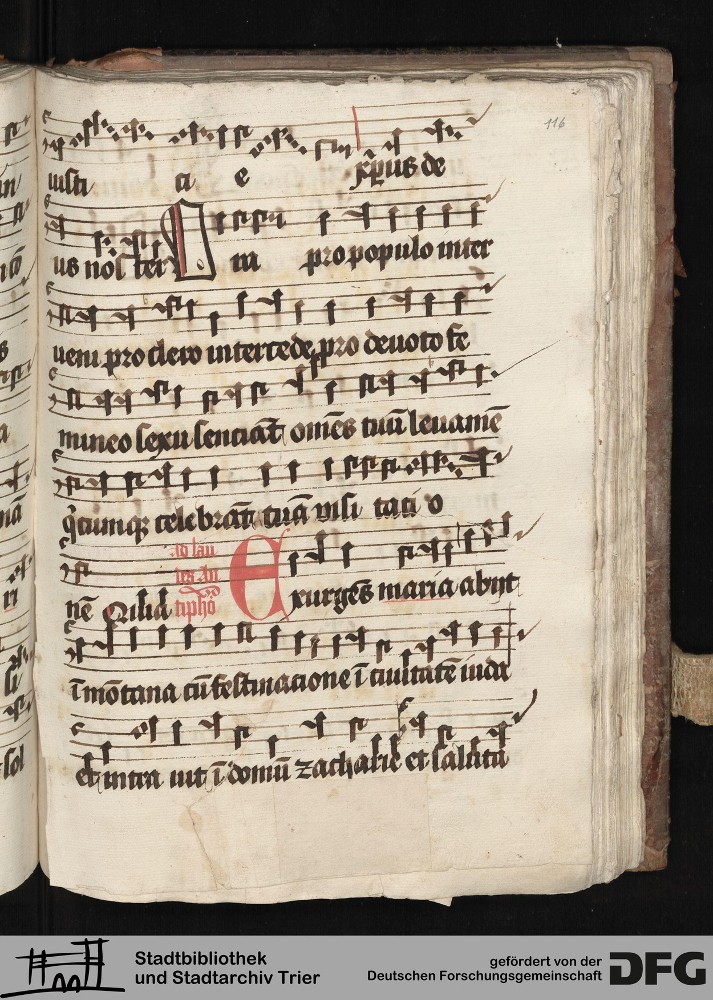 116
iusti ci e xp̄us de
us nos̄ ter ra pro populo inter
ueni pro clero intercede pro deuoto fe
mineo sexu senciāt om̄es tuū leuamē
q̄cumq; celebrāt tuā visi taci o
nē ad lau
des An
tiphō Exurgēs maria abijt
ī mōtana cū festinacione ī ciuitatē iuda
et intra uit ī domū zacharie et salutū
Stadtbibliothek
und Stadtarchiv Trier
gefördert von der
Deutschen Forschungsgemeinschaft
DFG